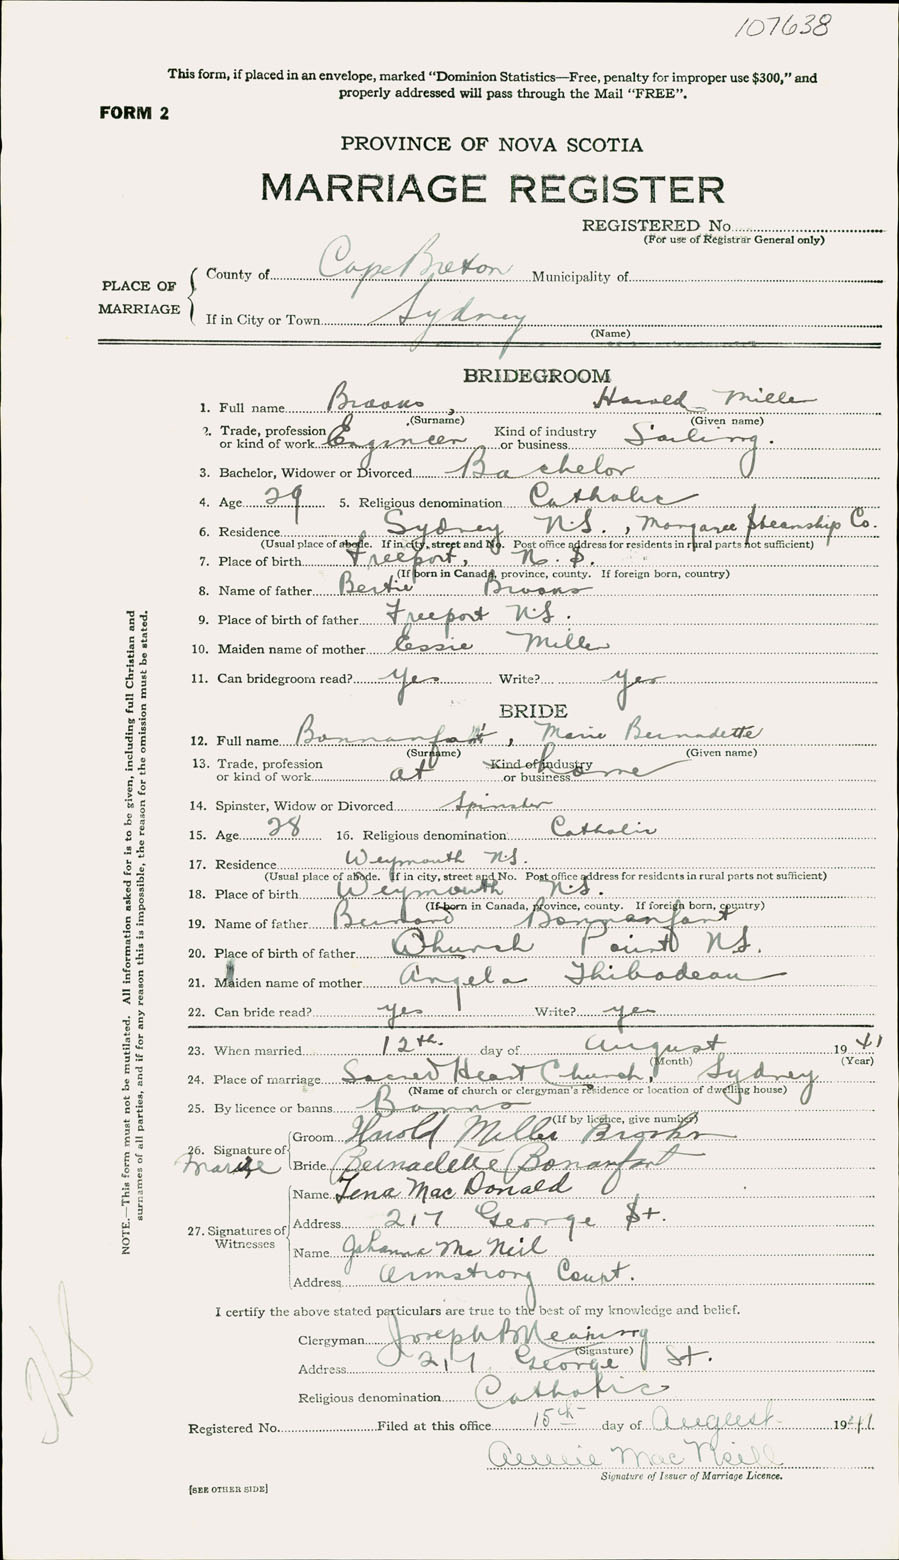 107638
This form, if placed in an envelope, marked “Dominion Statistics—Free, penalty for improper use $300,” and
properly addressed will pass through the Mail “FREE”.
FORM 2
PROVINCE OF NOVA SCOTIA
MARRIAGE REGISTER
REGISTERED No.
(For use of Registrar General only)
PLACE OF MARRIAGE
County of Cape Breton Municipality of
If in City or Town Sydney
(Name)
BRIDEGROOM
1. Full name Brooks, Harold Miller
(Surname) (Given name)
2. Trade, profession Kind of industry
or kind of work Engineer or business Sailing.
3. Bachelor, Widower or Divorced Bachelor
4. Age 29 5. Religious denomination Catholic
6. Residence Sydney N.S., Margaree Steamship Co.
(Usual place of abode. If in city, street and No. Post office address for residents in rural parts not sufficient)
7. Place of birth Freeport, N.S.
(If born in Canada, province, county. If foreign born, country)
8. Name of father Bertie Brooks
9. Place of birth of father Freeport N.S.
10. Maiden name of mother Essie Miller
11. Can bridegroom read? Yes Write? yes
BRIDE
12. Full name Bonnanfant, Marie Bernadette
(Surname) (Given name)
13. Trade, profession Kind of industry
or kind of work at home or business
14. Spinster, Widow or Divorced Spinster
15. Age 28 16. Religious denomination Catholic
17. Residence Weymouth N.S.
(Usual place of abode. If in city, street and No. Post office address for residents in rural parts not sufficient)
18. Place of birth Weymouth N.S.
(If born in Canada, province, county. If foreign born, country)
19. Name of father Bernard Bonnanfant
20. Place of birth of father Church Point N.S.
21. Maiden name of mother Angela Thibodeau
22. Can bride read? yes Write? yes
23. When married 12th. day of August 1941
(Month) (Year)
24. Place of marriage Sacred Heart Church, Sydney
(Name of church or clergyman's residence or location of dwelling house)
25. By licence or banns Banns
(If by licence, give number)
26. Signature of
Groom Harold Miller Brooks
Bride Marie Bernadette Bonanfant
27. Signatures of Witnesses
Name Tena MacDonald
Address 217 George St.
Name Johanna McNeil
Address Armstrong Court.
I certify the above stated particulars are true to the best of my knowledge and belief.
Clergyman Joseph B
(Signature)
Address 217 George St.
Religious denomination Catholic
Registered No. Filed at this office 15th day of August 1941
Annie MacNeill
Signature of Issuer of Marriage Licence.
[SEE OTHER SIDE]
NOTE.—This form must not be mutilated. All information asked for is to be given, including full Christian and
surnames of all parties, and if for any reason this is impossible, the reason for the omission must be stated.